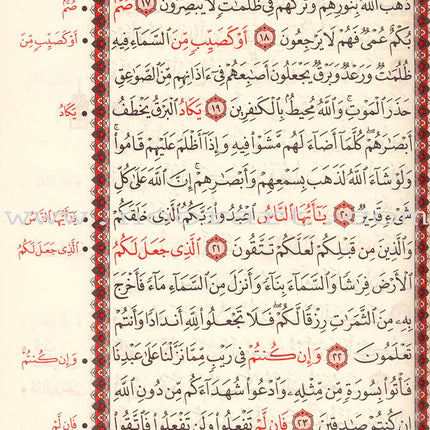 ذَهَبَ ٱللَّهُ بِنُورِهِمْ وَتَرَكَهُمْ فِى ظُلُمَٰتٍ لَّا يُبْصِرُونَ ١٧ صُمٌّۢ
صُمٌّۢ
بُكْمٌ عُمْىٌ فَهُمْ لَا يَرْجِعُونَ ١٨ أَوْ كَصَيِّبٍ مِّنَ ٱلسَّمَآءِ فِيهِ
أَوْ كَصَيِّبٍ مِّنَ
ظُلُمَٰتٌ وَرَعْدٌ وَبَرْقٌ يَجْعَلُونَ أَصَٰبِعَهُمْ فِىٓ ءَاذَانِهِم مِّنَ ٱلصَّوَٰعِقِ
حَذَرَ ٱلْمَوْتِ وَٱللَّهُ مُحِيطٌۢ بِٱلْكَٰفِرِينَ ١٩ يَكَادُ ٱلْبَرْقُ يَخْطَفُ
يَكَادُ
أَبْصَٰرَهُمْ كُلَّمَآ أَضَآءَ لَهُم مَّشَوْا۟ فِيهِ وَإِذَآ أَظْلَمَ عَلَيْهِمْ قَامُوا۟
وَلَوْ شَآءَ ٱللَّهُ لَذَهَبَ بِسَمْعِهِمْ وَأَبْصَٰرِهِمْ إِنَّ ٱللَّهَ عَلَىٰ كُلِّ
شَىْءٍ قَدِيرٌ ٢٠ يَٰٓأَيُّهَا ٱلنَّاسُ ٱعْبُدُوا۟ رَبَّكُمُ ٱلَّذِى خَلَقَكُمْ
يَٰٓأَيُّهَا ٱلنَّاسُ
وَٱلَّذِينَ مِن قَبْلِكُمْ لَعَلَّكُمْ تَتَّقُونَ ٢١ ٱلَّذِى جَعَلَ لَكُمُ
ٱلَّذِى جَعَلَ لَكُمُ
ٱلْأَرْضَ فِرَٰشًا وَٱلسَّمَآءَ بِنَآءً وَأَنزَلَ مِنَ ٱلسَّمَآءِ مَآءً فَأَخْرَجَ
بِهِۦ مِنَ ٱلثَّمَرَٰتِ رِزْقًا لَّكُمْ فَلَا تَجْعَلُوا۟ لِلَّهِ أَندَادًا وَأَنتُمْ
تَعْلَمُونَ ٢٢ وَإِن كُنتُمْ فِى رَيْبٍ مِّمَّا نَزَّلْنَا عَلَىٰ عَبْدِنَا
وَإِن كُنتُمْ
فَأْتُوا۟ بِسُورَةٍ مِّن مِّثْلِهِۦ وَٱدْعُوا۟ شُهَدَآءَكُم مِّن دُونِ ٱللَّهِ
إِن كُنتُمْ صَٰدِقِينَ ٢٣ فَإِن لَّمْ تَفْعَلُوا۟ وَلَن تَفْعَلُوا۟ فَٱتَّقُوا۟
فَإِن لَّمْ